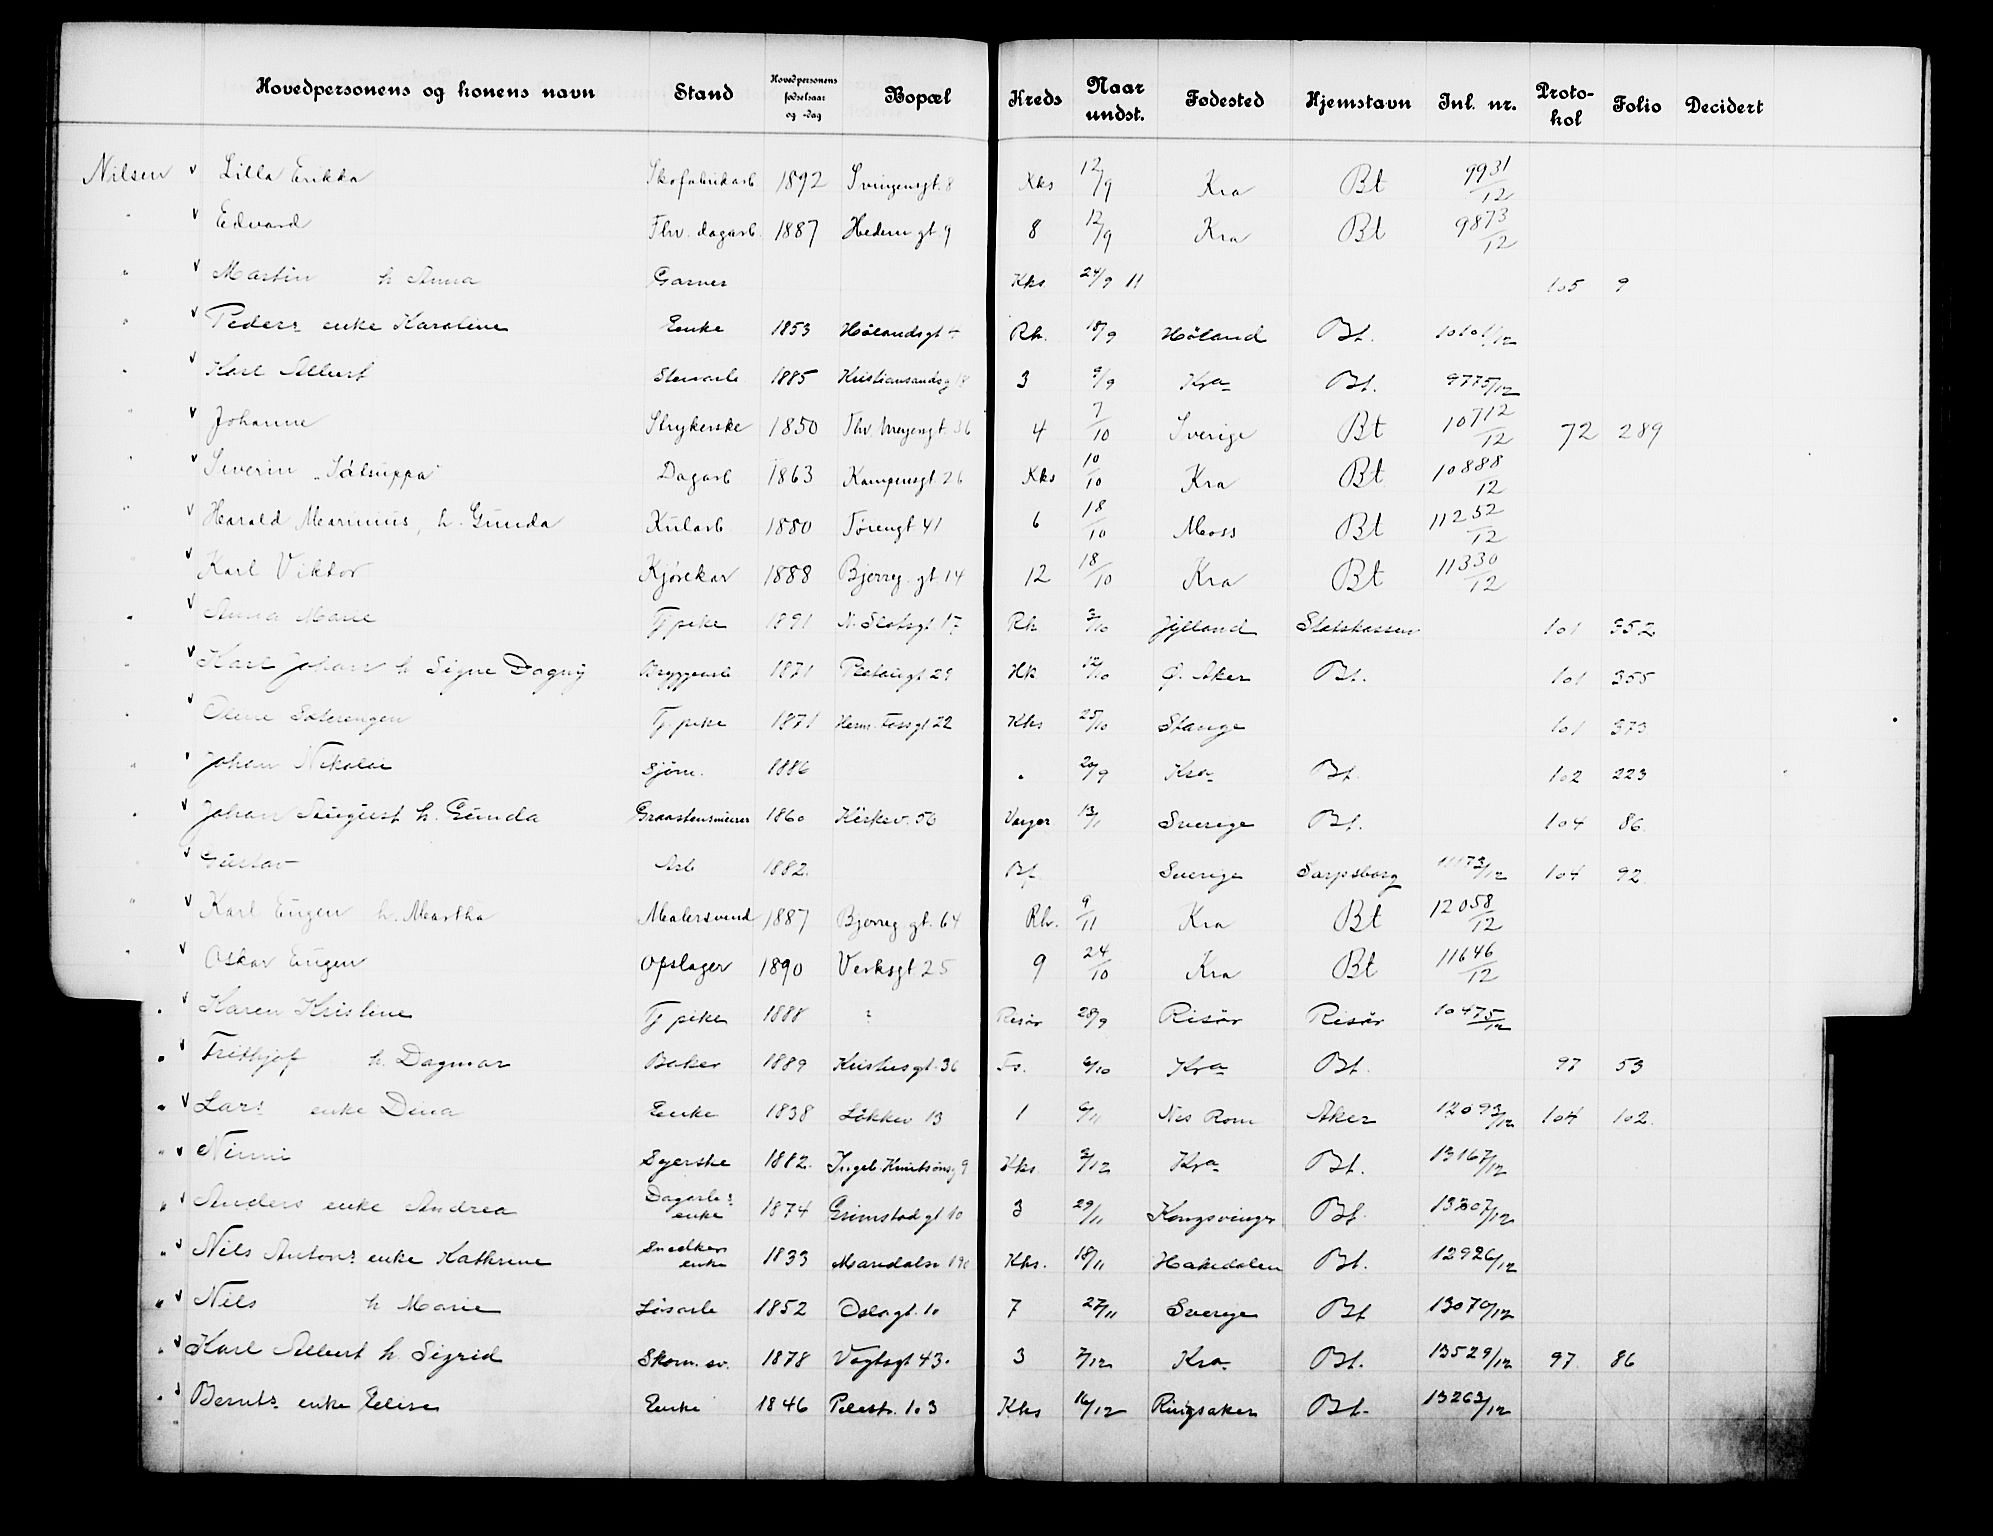 Hovedpersonens og konens navn Stand Hovedpersonens fødselsaar og -dag Bopæl Kreds Naar undst. Fødested Hjemstavn Inl. nr. Proto-kol Folio Decidert
Nilsen v Lilla Erikka Skofabrikarb 1892 Svingensgt. 8 Kks 12/9 Kra Bt 9931/12
" v Edvard Fhv. dagarb. 1887 Hedem gt 9 8 12/9 Kra Bt 9873/12
" v Martin h Anna Garver Kks 24/9 11 105 9
" v Peders enke Karoline Enke 1853 Hölandsgt Rh. 18/9 Höland Bt. 10101/12
" v Karl Albert Stenarb 1885 Kristiansandsg 18 3 9/9 Kra Bt. 9775/12
" v Johanne Strykerske 1850 Thv. Meyersgt. 36 4 7/10 Sverige Bt 10712/12 72 289
" v Severin "Sålsuppa" Dagarb 1863 Kampensgt 26 Kks 10/10 Kra Bt 10888/12
" v Harald Marinius, h. Gunda Kularb 1880 Tórengt 41 6 18/10 Moss Bt 11252/12
" v Karl Viktor Kjörekar 1888 Bjerreg. gt 14 12 18/10 Kra Bt 11330/12
" v Anna Marie Tj pike 1891 N. Slotsgt 17 Rh 3/10 Jylland Statskassen 101 352
" v Karl Johan h Signe Dagny Bryggearb 1871 29 Hk 12/10 Ø. Aker Bt. 101 355
" v Oline Sæterengen Tj. pike 1871 Herm. Fossgt 22 Kks 25/10 Stange 101 373
" ' Johan Nikolai Sjöm. 1886 " 20/9 Kra Bt. 102 223
" v Johan August h. Gunda Graastensmurer 1860 Kirkev. 56 Vorger 13/1 Sverige Bt. 104 86
" v Gustav Arb 1882. Bf. Sverige Sarpsborg 11173/12 104 92
" v Karl Eugen h. Martha Malersvend 1887 Bjerreg gt. 64 Rh. 9/11 Kra Bt 12058/12
" v Oskar Eugen Opslager 1890 Verksgt 25 9 24/10 Kra Bt 11646/12
" v Karen Kristine Tj pike 1888 ? Risör 28/9 Risör Risör 10475/12
" v Frithjof h. Dagmar Baker 1889 Kristiesgt. 36 Fs. 6/10 Kra Bt. 97 53
" v Lars enke Dina Enke 1838 Lökkev 13 1 6/11 Nes Rom Aker 12093/12 104 102.
" v Ninni Syerske 1882. Ingeb. Knutsönsg 9 Kks. 3/12 Kra Bt. 13167/12
" v Anders enke Andrea Dagarb.s enke 1874 Grimstad gt 10 3 29/11 Kongsvinger Bt. 13207/12
" v Nils Antons enke Kathrine Snedkers enke 1833 Maridalsv 190 Kks. 18/11 Hakedalen Bt. 12926/12
" v Nils h Marie Lösarb 1852 Oslogt. 10 7 27/11 Sverige Bt 13070/12
" v Karl Albert h. Sigrid Skom. sv. 1878 Vogtsgt 43. 3 7/12 Kra Bt. 13529/12 97. 86
" v Bernts enke Elise Enke 1846 Pilestr. 103 Kks 16/12 Ringsaker Bt. 13263/12